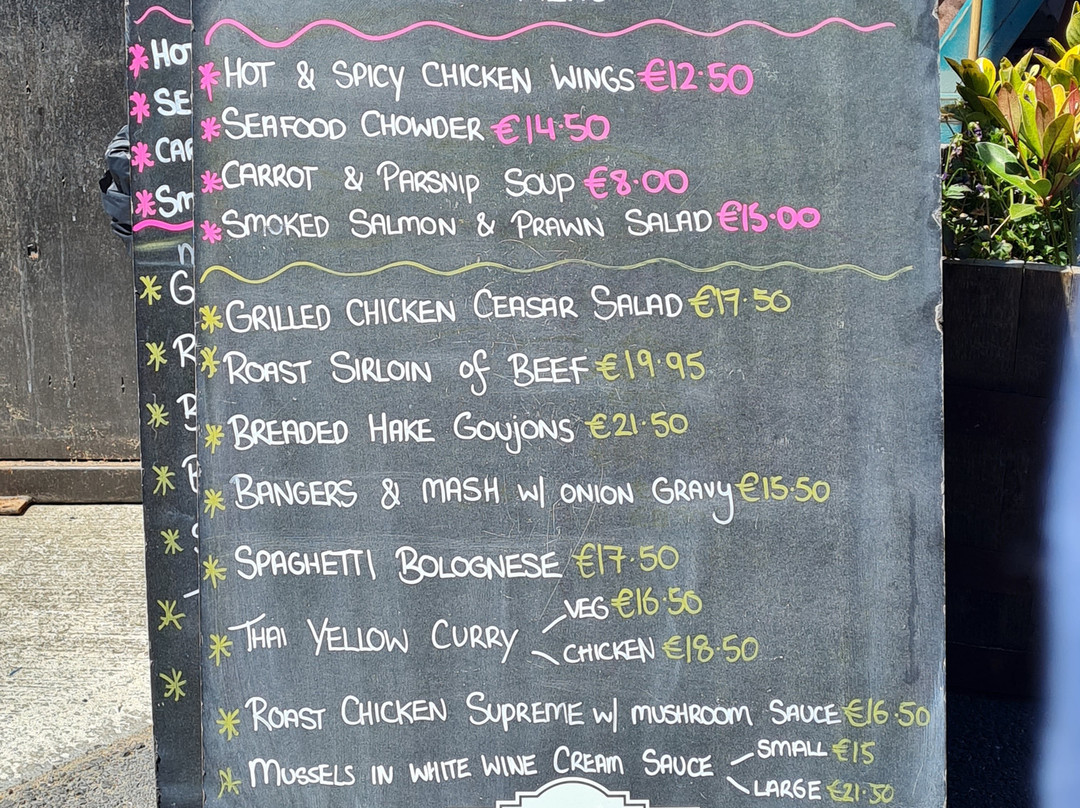 * HOT & SPICY CHICKEN WINGS €12.50
* SEAFOOD CHOWDER €14.50
* CARROT & PARSNIP SOUP €8.00
* SMOKED SALMON & PRAWN SALAD €15.00
* GRILLED CHICKEN CEASAR SALAD €17.50
* ROAST SIRLOIN of BEEF €19.95
* BREADED HAKE GOUJONS €21.50
* BANGERS & MASH W/ ONION GRAVY €15.50
* SPAGHETTI BOLOGNESE €17.50
* THAI YELLOW CURRY VEG €16.50
CHICKEN €18.50
* ROAST CHICKEN SUPREME W/ MUSHROOM SAUCE €16.50
* MUSSELS IN WHITE WINE CREAM SAUCE SMALL €15
LARGE €21.50